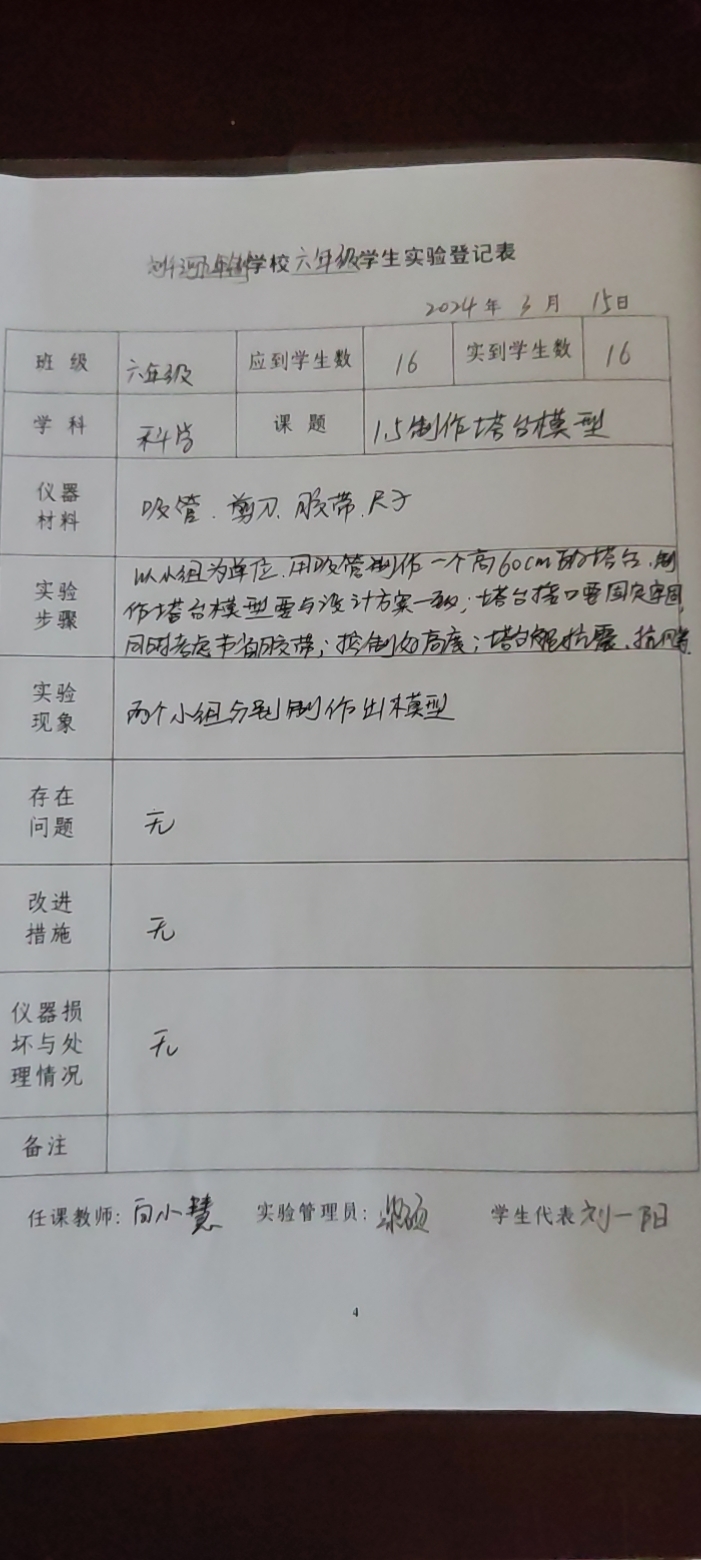 学校六年级学生实验登记表
2024年3月15日
班级 六年级 应到学生数 16 实到学生数 16
学科 科学 课题 1.5制作塔台模型
仪器材料 吸管、剪刀、胶带、尺子
实验步骤 以小组为单位,用吸管制作一个高60cm的塔台,制
作塔台模型要与设计方案一致;塔台接口要固定牢固,
同时考虑节省胶带;控制好高度;塔台能抗震、抗风等.
实验现象 两个小组分别制作出模型
存在问题 无
改进措施 无
仪器损坏与处理情况 无
备注
任课教师:向小慧 实验管理员: 学生代表 刘一阳
4